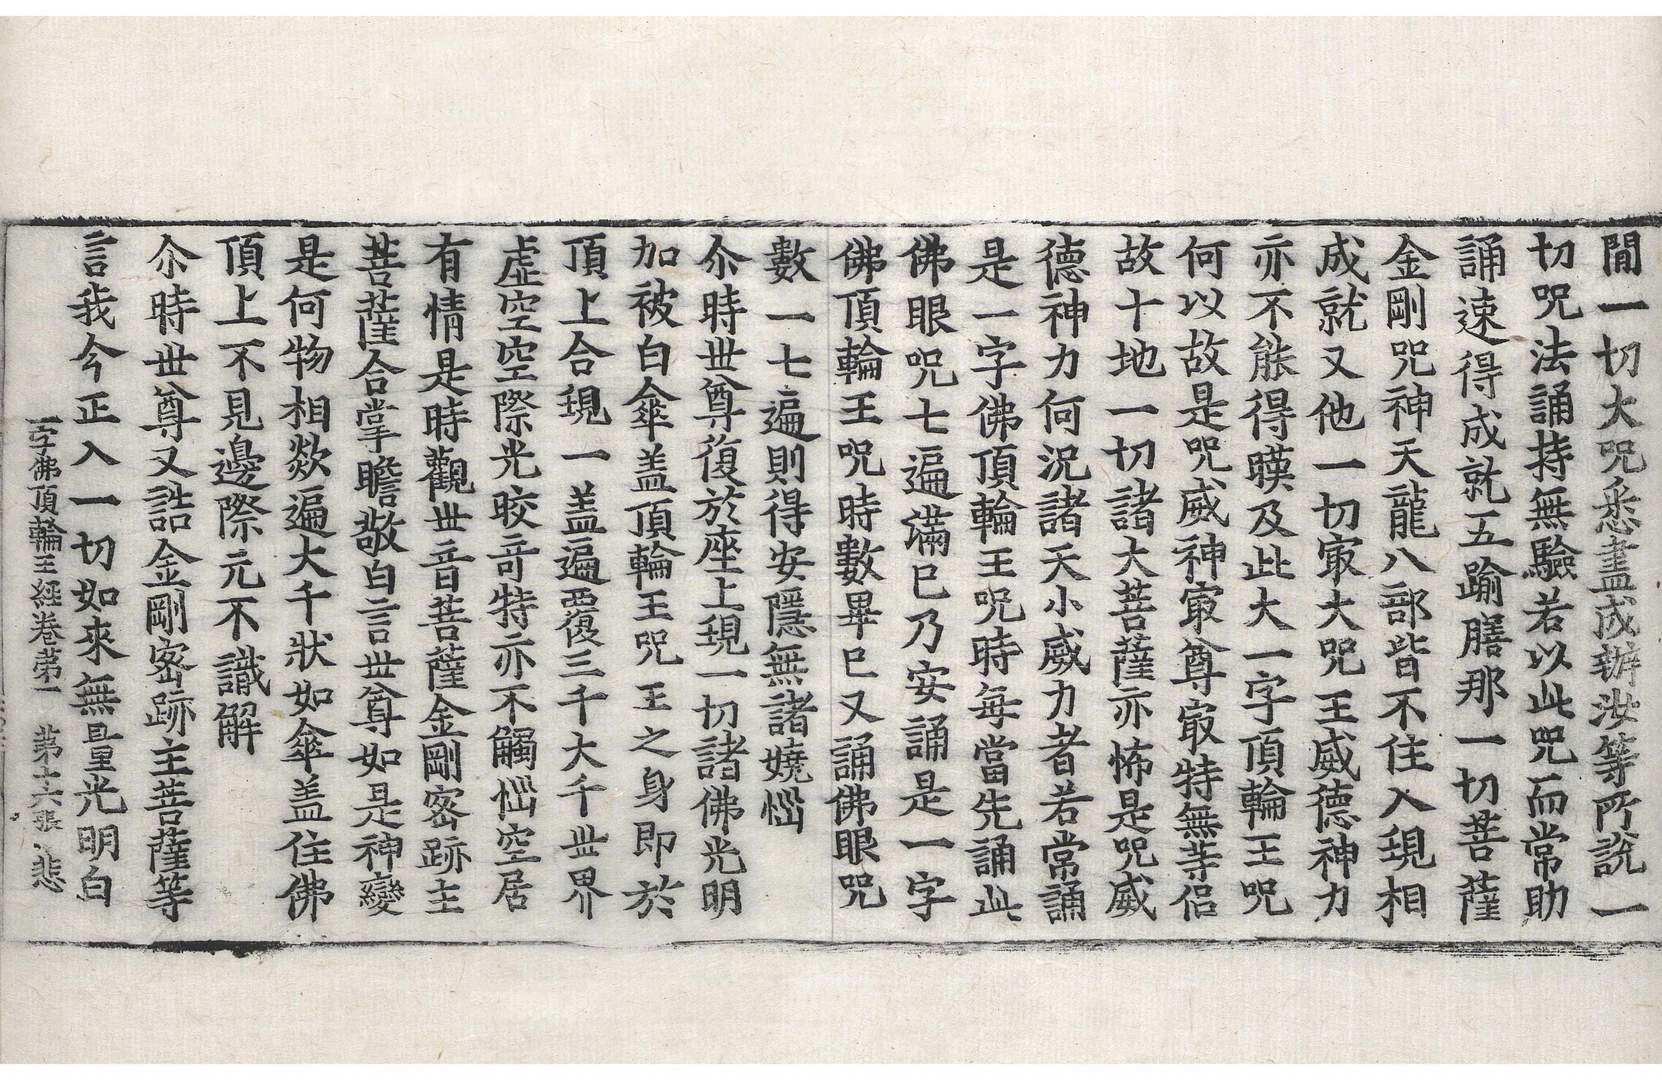 間一切大咒悉盡成辦汝等所說一
切咒法誦持無驗若以此咒而常助
誦速得成就五踰膳那一切菩薩
金剛咒神天龍八部皆不住入現相
成就又他一切㝡大咒王威德神力
亦不能得暎及此大一字頂輪王咒
何以故是咒威神㝡尊㝡特無等侶
故十地一切諸大菩薩亦怖是咒威
德神力何況諸天小威力者若常誦
是一字佛頂輪王咒時每當先誦此
佛眼咒七遍滿已乃安誦是一字
佛頂輪王咒時數畢已又誦佛眼咒
數一七遍則得安隱無諸嬈惱
尒時世尊復於座上現一切諸佛光明
加被白傘盖頂輪王咒王之身即於
頂上合現一盖遍覆三千大千世界
虛空空際光晈竒特亦不觸惱空居
有情是時觀世音菩薩金剛密跡主
菩薩合掌瞻敬白言世尊如是神變
是何物相欻遍大千狀如傘盖住佛
頂上不見邊際元不識解
尒時世尊又誥金剛密跡主菩薩等
言我今正入一切如來無量光明白
一字佛頂輪王經卷第一 第十六張 悲